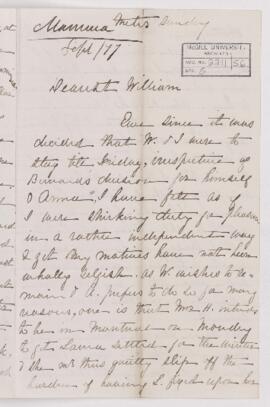 Mamma
Metis Sunday
Sept/77
McGILL UNIVERSITY
ARCHIVES
ACC. NO. 2211 56
REF. 6
Dearest William
Ever since it was
decided that W. & I were to
stay till Friday, irrespective of
decision for himself
& Anna, I have felt as if
I were shirking duty for pleasure
in a rather independent way
& yet my motives have not been
wholly selfish. as W wishes to re-
main & A. prefers to do so for many
reasons, one is that Mrs H. intends
to be in Montreal on Monday
to get Laura settled for the winter
& she thus quietly slips off the
burden of having L. fixed upon her